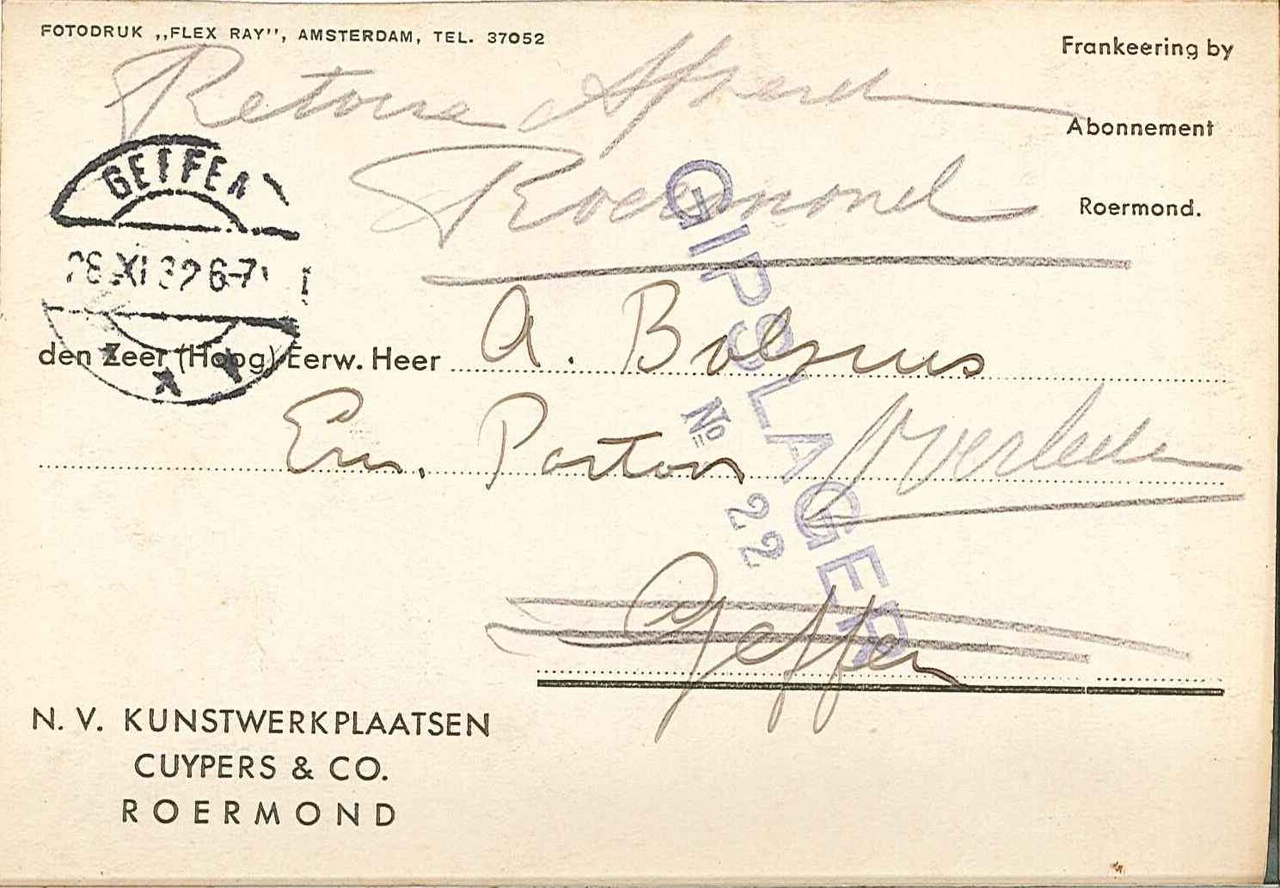 FOTODRUK ,,FLEX RAY'', AMSTERDAM, TEL. 37052
Frankeering by
Abonnement
Roermond.
Retour Afzend
Roermond
GEFFEN
28 XI 32 6-7
den Zeer (Hoog) Eerw. Heer A. Bolsius
Em. Pastoor
Overleden
Geffen
GIPSLAGER
No 22
N. V. KUNSTWERKPLAATSEN
CUYPERS & CO.
ROERMOND